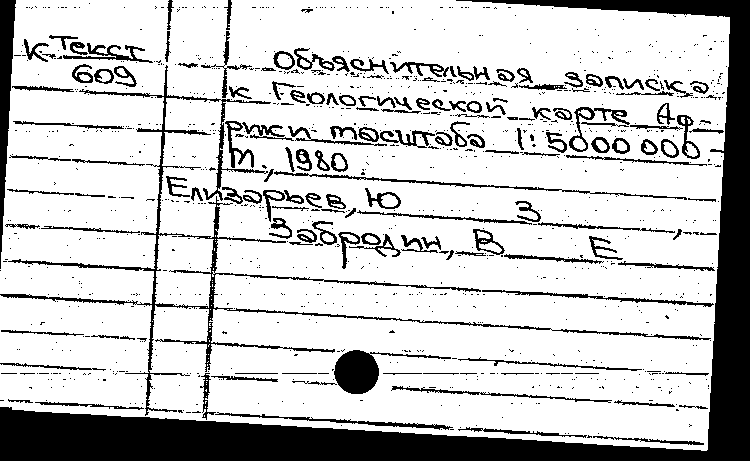 К Текст
609
Объяснительная записка
к Геологической карте Аф-
рики масштаба 1:5000 000.-
М., 1980.
Елизарьев, Ю З ,
Забродин, В Е